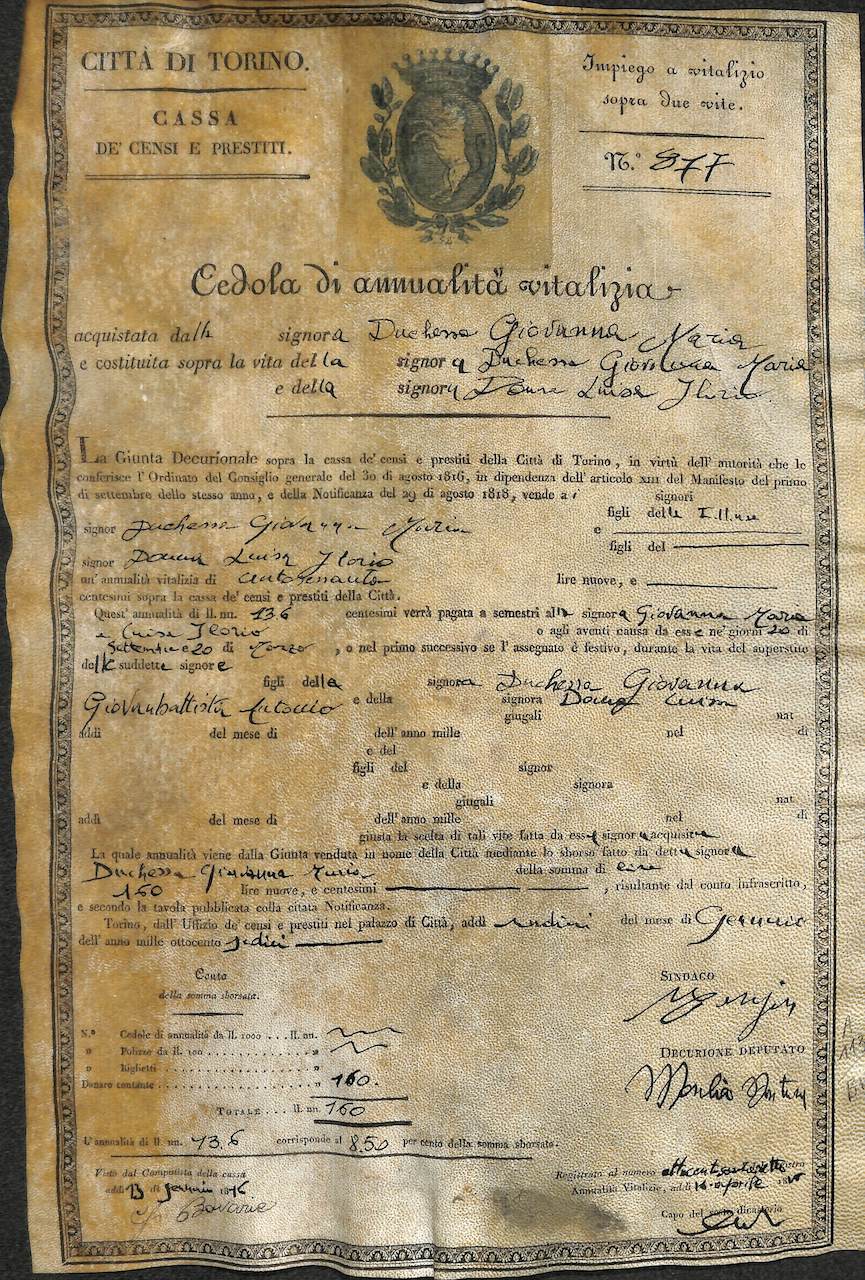 CITTÀ DI TORINO.
CASSA
DE' CENSI E PRESTITI.
Impiego a vitalizio
sopra due vite.
N.° 877
Cedola di annualità vitalizia
acquistata dalla signora Duchessa Giovanna Maria
e costituita sopra la vita della signora Duchessa Giovanna Maria
e della signora Donna Luisa Ilorio.
La Giunta Decurionale sopra la cassa de' censi e prestiti della Città di Torino, in virtù dell' autorità che le
conferisce l' Ordinato del Consiglio generale del 30 di agosto 1816, in dipendenza dell' articolo XIII del Manifesto del primo
di settembre dello stesso anno, e della Notificanza del 29 di agosto 1818, vende a i signori
figli delle
signor Duchessa Giovanna Maria e
figli del
signor Donna Luisa Ilorio
un' annualità vitalizia di lire nuove, e
centesimi sopra la cassa de' censi e prestiti della Città.
Quest' annualità di ll. nn. 13.6 centesimi verrà pagata a semestri alla signora Giovanna Maria
e Luisa Ilorio o agli aventi causa da esse ne' giorni 20 di
Settembre e 20 di Marzo, o nel primo successivo se l' assegnato è festivo, durante la vita del superstite
delle suddette signore
figli della signora Duchessa Giovanna
Giovanbattista Antonio e della signora Donna Luisa
giugali nat
addì del mese di dell' anno mille nel di
e del
figli del signor
e della signora
giugali nat
addì del mese di dell' anno mille nel di
giusta la scelta di tali vite fatta da essa signora acquisitra
La quale annualità viene dalla Giunta venduta in nome della Città mediante lo sborso fatto da detta signora
Duchessa Giovanna Maria della somma di lire
160 lire nuove, e centesimi , risultante dal conto infrascritto,
e secondo la tavola pubblicata colla citata Notificanza.
Torino, dall' Uffizio de' censi e prestiti nel palazzo di Città, addì del mese di Gennaio
dell' anno mille ottocento
Conto
della somma sborsata.
N.° Cedole di annualità da ll. 1000 . . . ll. nn.
" Polizze da ll. 100 . . . "
" Biglietti . . . "
Denaro contante . . . " 160.
TOTALE . . . ll. nn. 160
L' annualità di ll. nn. 13.6 corrisponde al 8.50 per cento della somma sborsata.
SINDACO
DECURIONE DEPUTATO
Visto dal Computista della cassa
addì 13 di gennaio 1816.
Registrato al numero
Annualità Vitalizie, addì 16 aprile
Capo del